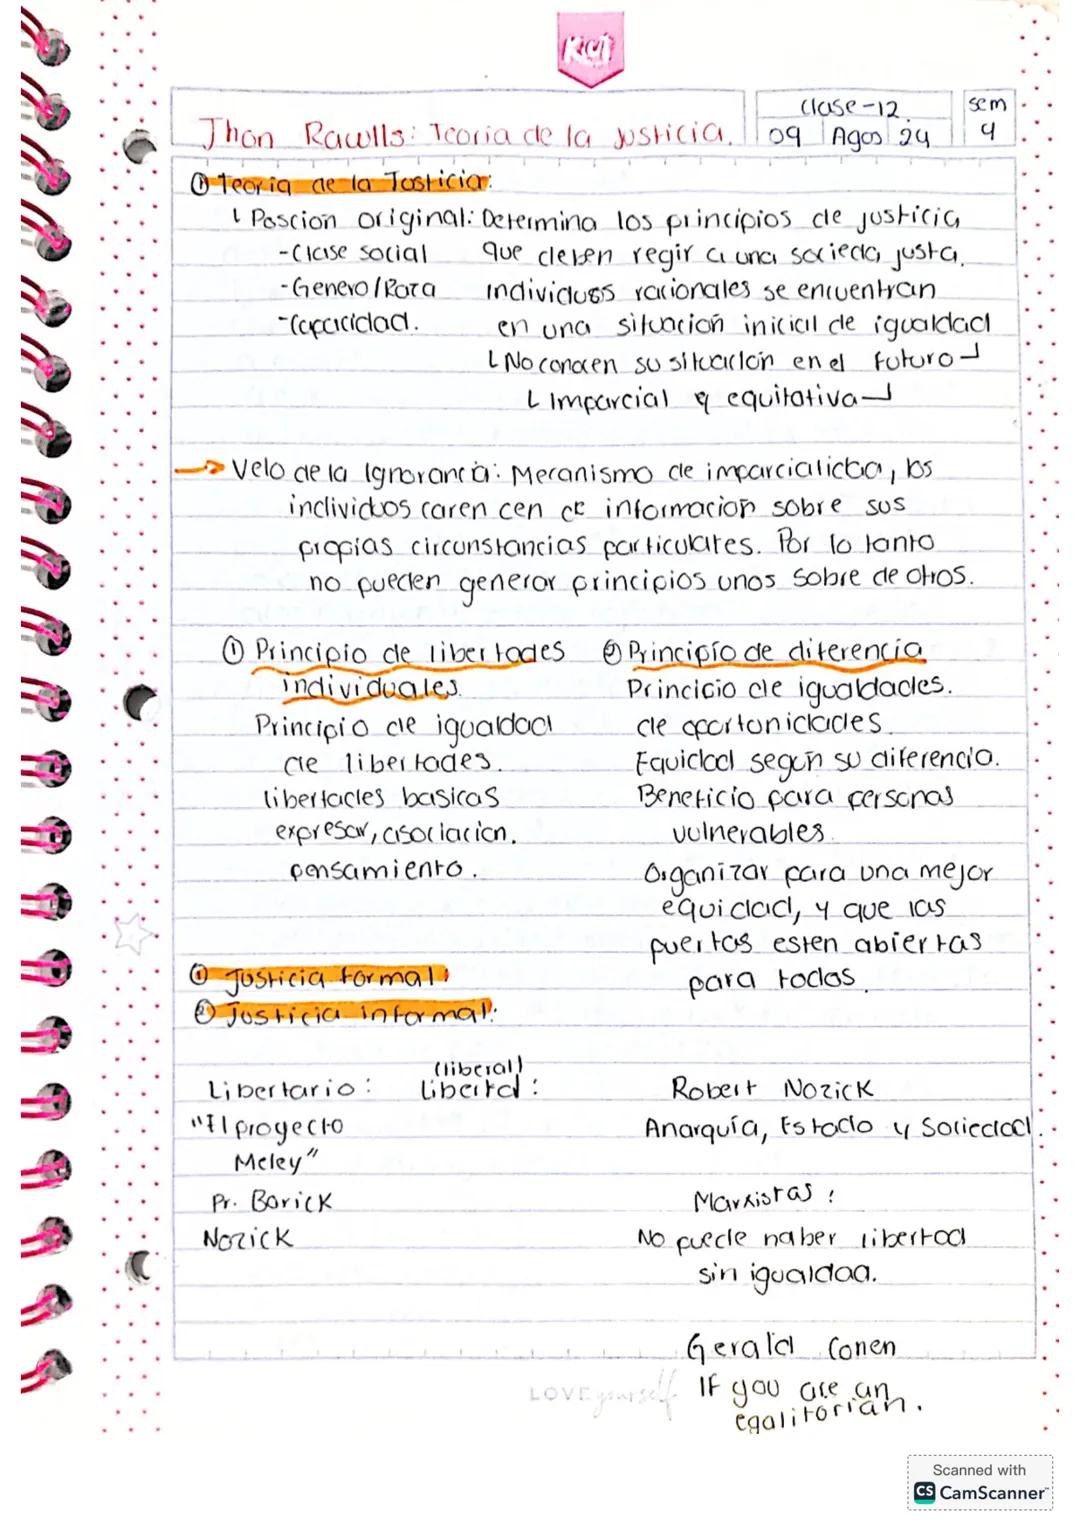 Kct
Clase-12. sem
Jhon Rawlls: Teoria de la justicia. 09 Agos 24 4
① Teoria de la Justicia:
Poscion original: Determina los principios de justicia
-Clase social que deben regir a una socieda justa.
-Genero/Raza individuos racionales se encuentran
-Capacidad. en una situacion inicial de igualdad
No conocen su situacion en el futuro
Imparcial y equitativa
→ Velo de la Ignorancia: Mecanismo de imparcialidad, los
individuos caren cen de informacion sobre sus
propias circunstancias particulares. Por lo tanto
no pueden generar principios unos sobre de otros.
① Principio de libertades
individuales.
Principio de igualdad
de libertades.
libertades basicas
expresar, asociacion.
pensamiento.
② Principio de diferencia
Principio de igualdades.
de oportunidades.
Equidad según su diferencia.
Beneficio para personas
vulnerables.
Organizar para una mejor
equidad, y que las
puertas esten abiertas
para todos.
① Justicia formal:
② Justicia informal:
(liberal)
Libertario: liberta :
"El proyecto
Meley"
Pr. Borick
Nozick
Robert Nozick
Anarquía, Estado y Sociedad.
Marxistas:
No puede haber libertad
sin igualdad.
Gerald Conen
LOVE yourself If you are an
egalitorian.
Scanned with
CS CamScanner